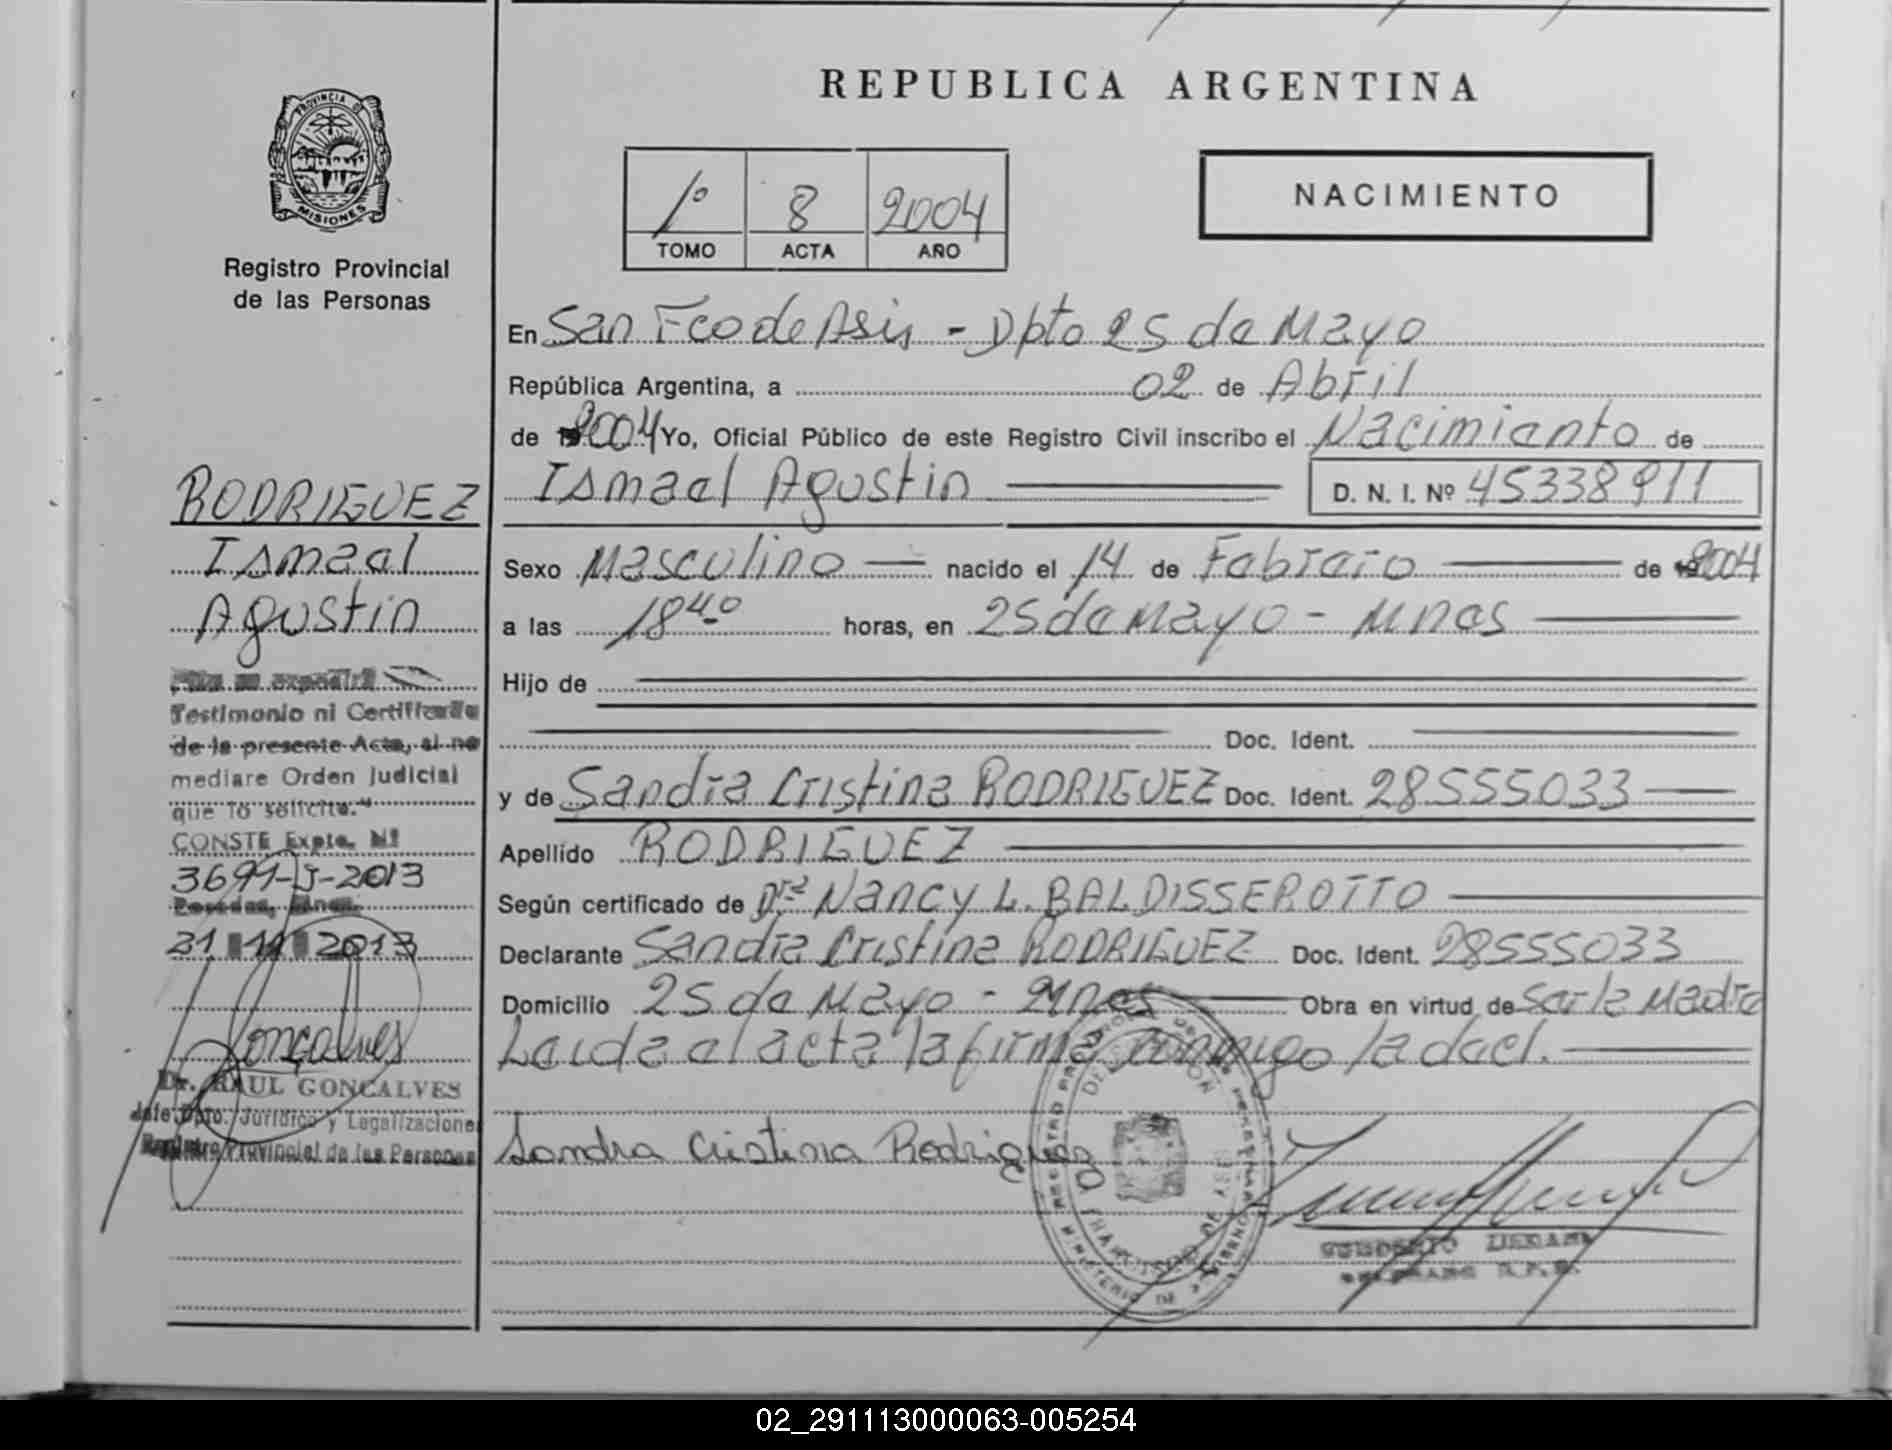 REPUBLICA ARGENTINA
PROVINCIA DE
MISIONES
Registro Provincial
de las Personas
1º 8 2004
TOMO ACTA AÑO
NACIMIENTO
En San Fco de Asis - Dpto 25 de Mayo
República Argentina, a 02 de Abril
de 2004 Yo, Oficial Público de este Registro Civil inscribo el Nacimiento de
Ismael Agustin D. N. I. Nº 45338911
Sexo Masculino nacido el 14 de Febrero de 2004
a las 18 40 horas, en 25 de Mayo - Mnes
Hijo de
Doc. Ident.
y de Sandra Cristina RODRIGUEZ Doc. Ident. 28555033
Apellido RODRIGUEZ
Según certificado de Drª Nancy L. BALDISSEROTTO
Declarante Sandra Cristina RODRIGUEZ Doc. Ident. 28555033
Domicilio 25 de Mayo - Mnes Obra en virtud de Ser la Madre
Leida el acta la firma conmigo la decl.
Sandra Cristina Rodriguez
RODRIGUEZ
Ismael
Agustin
expedirá
Testimonio ni Certificado
de la presente Acta, si no
mediare Orden Judicial
que lo solicite."
CONSTE Expte. Nº
3691-J-2013
Posadas, Mnes.
21 11 2013
Gonçalves
Dr. RAUL GONCALVES
Jefe Dpto. Jurídico y Legalizaciones
Registro Provincial de las Personas
02_291113000063-005254